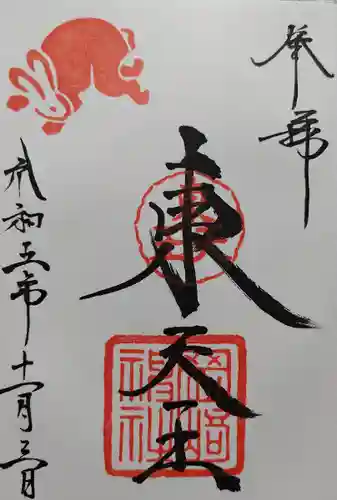 奉拝
東天王
岡崎
神社
令和五年十一月三日